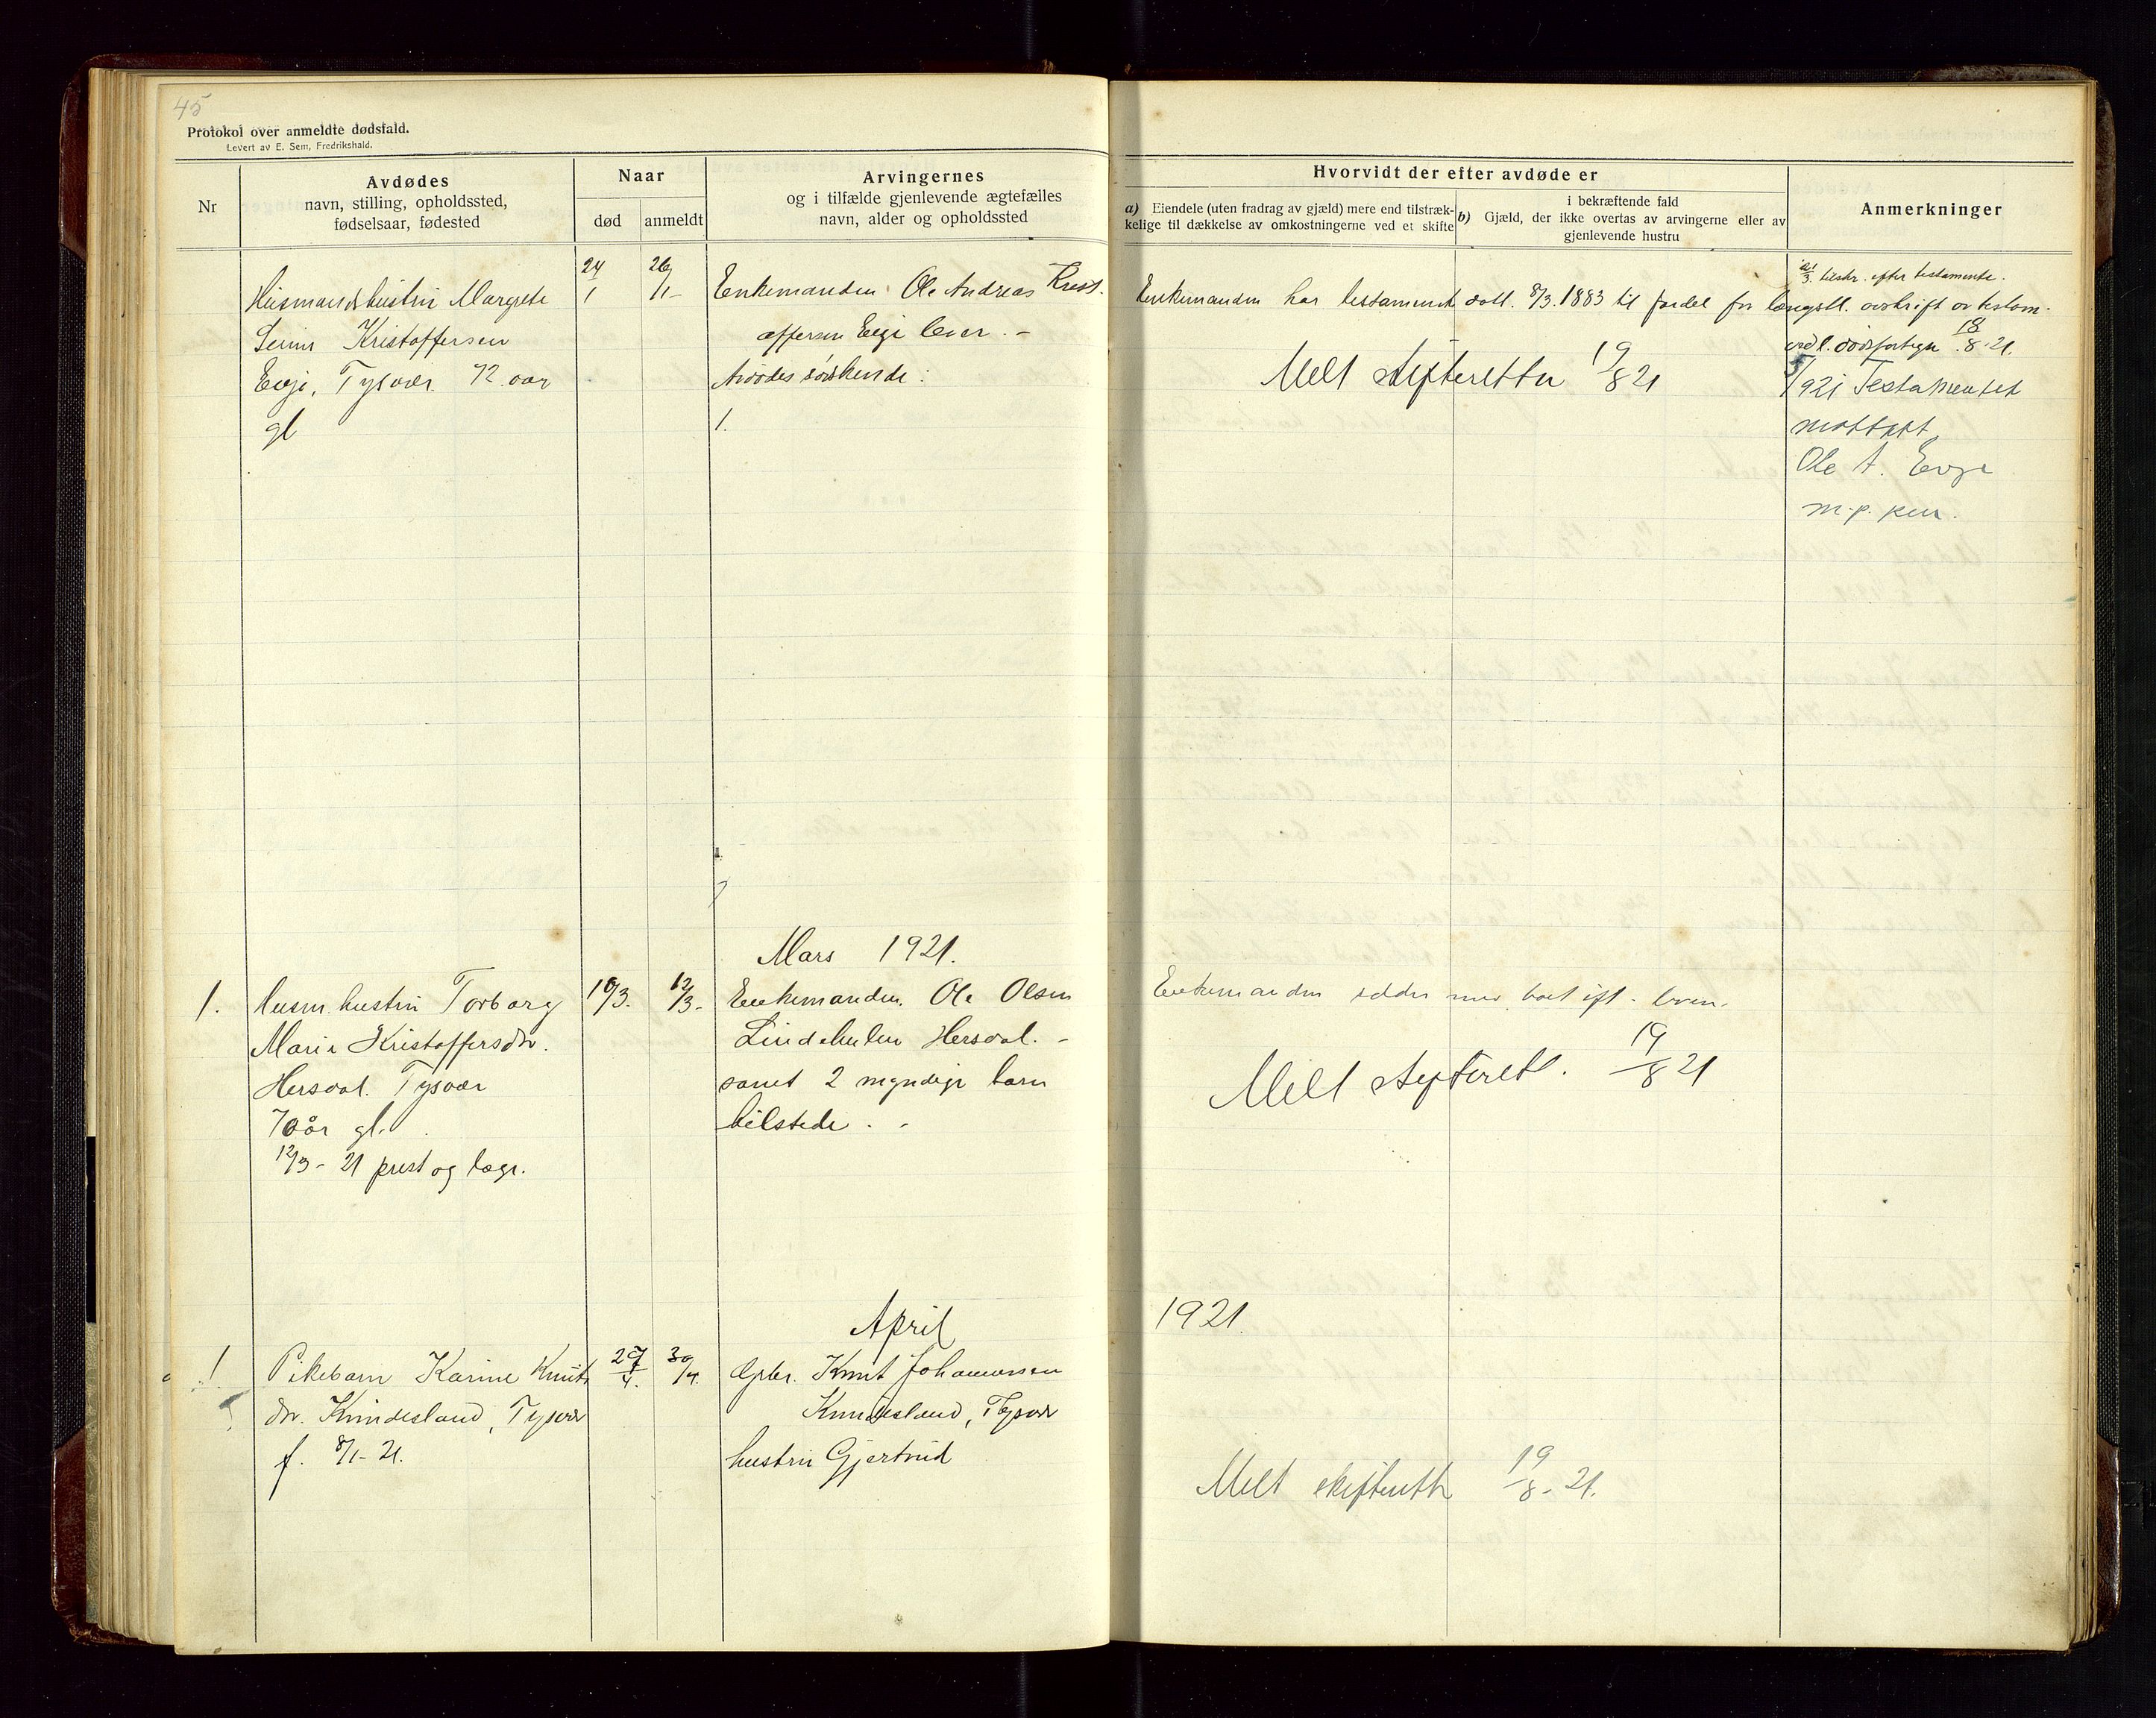 45
Protokol over anmeldte dødsfald.
Levert av E. Sem, Fredrikshald.
Nr
Avdødes
navn, stilling, opholdssted,
fødselsaar, fødested
Naar
død
anmeldt
Arvingernes
og i tilfælde gjenlevende ægtefælles
navn, alder og opholdssted
Husmandshustru Margrete
Kristoffersen
Evje, Tysvær 72 aar
gl
24/1
26/1-
Enkemanden Ole Andreas Krist-
offersen Evje lever. -
Avdødes søskende:
1.
Mars 1921.
1.
Husm. hustru Torborg
Marie Kristoffersdtr.
Hersdal. Tysvær
70 år gl.
12/3- 21 prest og læge.
10/3.
12/3-
Enkemanden Ole Olsen
Lindehulen Hersdal. -
samt 2 myndige barn
tilstede. -
April
1
Pikebarn Karine Knuts
dtr. Knudesland, Tysvær
f. 8/1- 21.
29/4.
30/4.
Gpbr. Knut Johannessen
Knudesland, Tysvær
hustru Gjertrud
Hvorvidt der efter avdøde er
a) Eiendele (uten fradrag av gjæld) mere end tilstræk-
kelige til dækkelse av omkostningerne ved et skifte
i bekræftende fald
b) Gjæld, der ikke overtas av arvingerne eller av
gjenlevende hustru
Anmerkninger
Enkemanden har testament datt. 8/3. 1883 til fordel for længstl.
Meldt skifteretten 19/8 21
efter testamente.
avskrift av testam.
18/8-21.
1921 Testamentet
mottatt
Ole A. Evje
m. p. pen.
Enkemanden sidder
Meldt skifterett. 19/8 21
1921.
Meldt skifterett 19/8- 21.